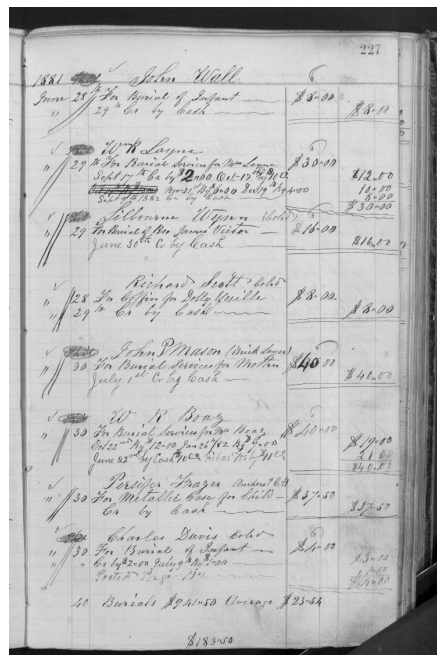 227
1881 John Wall
June 28th For Burial of Infant $8.00
" 29th Cr by Cash $8.00
W R Layne
" 29th For Burial Services for Mrs Layne $30.00
Sept 17th Ca by $2.00 Oct 17th By 10 $12.00
Nov 21, By 6.00 Dec 19th By 4.00 10.00
Sept 9th 1882 Cr by Cash 8.00
$30.00
Wynn (Cold)
" 29 For Burial of Bro James Victor $16.00
June 30th Cr by Cash $16.00
Richard Scott Cold
" 28 For Coffin for Dolly $8.00
" 29th Cr by Cash $8.00
John P Mason (Brick Layer)
" 30 For Burial Services for Mother $40.00
July 1st Cr by Cash $40.00
W R Boaz
" 30 For Burial Services for Mrs Boaz $40.00
Oct 22nd By $12.00 Jan 26th/82 By $7.00 $19.00
June 22nd by Cash $10 21.00
$40.00
Persifer Frazer Amherst C.H.
" 30 For Metallic Case for Child $37.50
Cr by Cash $37.50
Charles Davis Cold
" 30 For Burial of Infant $4.00
" Cr by $2.00 July 9th By $1.00 $3.00
1.00
$4.00
40 Burials $941.50 Average $23.54
$183.50